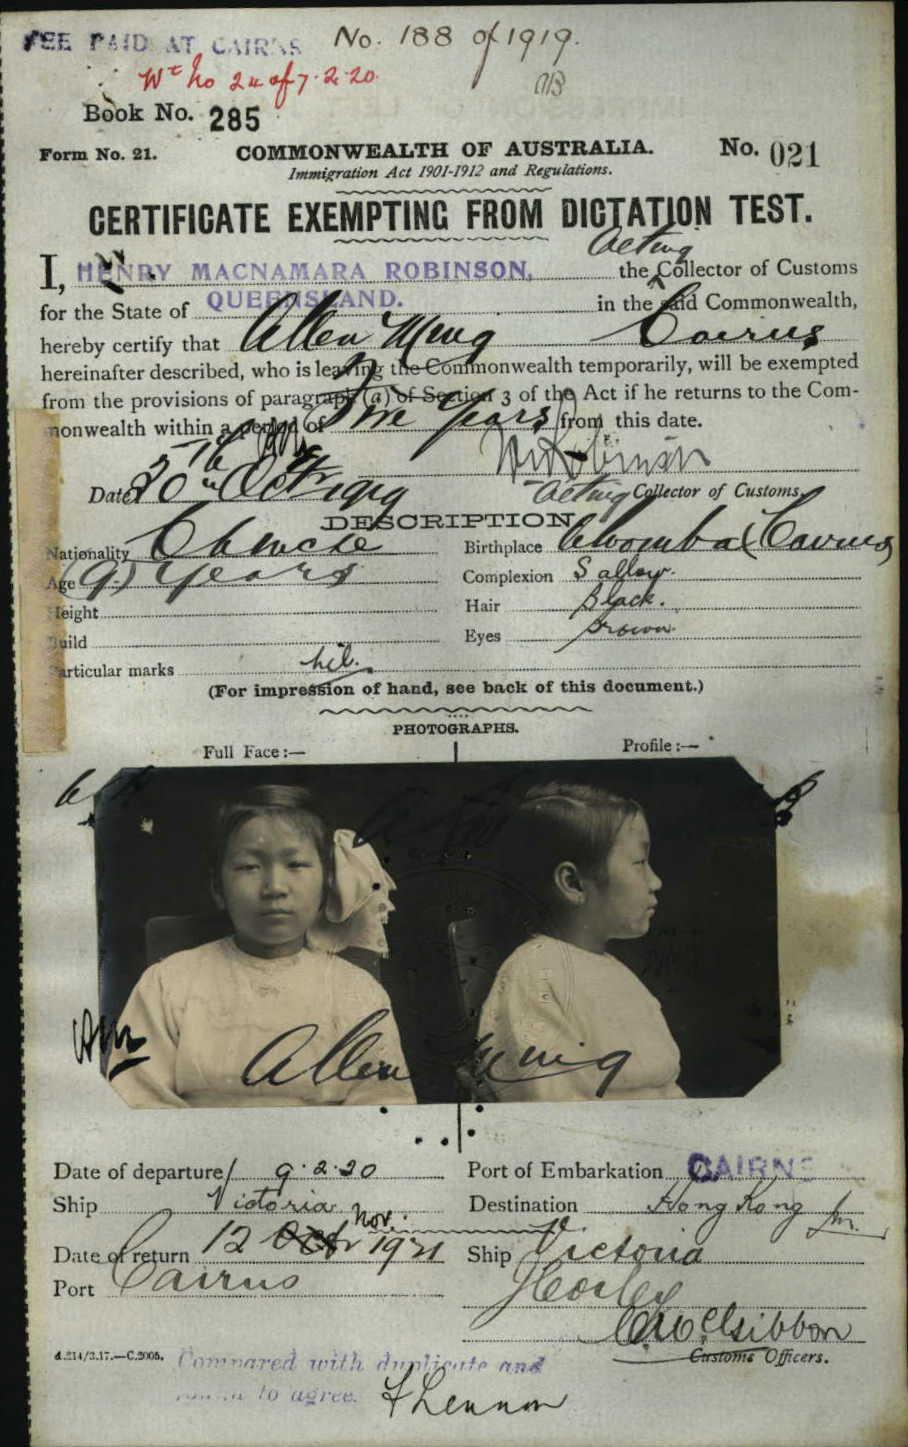 FEE PAID AT CAIRNS No. 188 of 1919.
Wt No 24 of 7.2.20.
Book No. 285
Form No. 21. COMMONWEALTH OF AUSTRALIA. No. 021
Immigration Act 1901-1912 and Regulations.
CERTIFICATE EXEMPTING FROM DICTATION TEST.
Acting
I, HENRY MACNAMARA ROBINSON, the Collector of Customs
for the State of QUEENSLAND. in the said Commonwealth,
hereby certify that Allen Ming Cairns
hereinafter described, who is leaving the Commonwealth temporarily, will be exempted
from the provisions of paragraph (a) of Section 3 of the Act if he returns to the Com-
monwealth within a period of Five years from this date.
Date 30th Oct 1919 Acting Collector of Customs
DESCRIPTION
Nationality Chinese Birthplace Aloomba (Cairns
Age (9) years Complexion Sallow.
Height Hair Black.
Build Eyes Brown
Particular marks nil.
(For impression of hand, see back of this document.)
PHOTOGRAPHS.
Full Face:— Profile:—
Allen Ming
Date of departure 9.2.20 Port of Embarkation CAIRNS
Ship Victoria Destination Hong Kong
Nov.
Date of return 12 Oct 1921 Ship Victoria
Port Cairns
Customs Officers.
d.214/3.17.—C.2005. Compared with duplicate and
found to agree. F Lennon